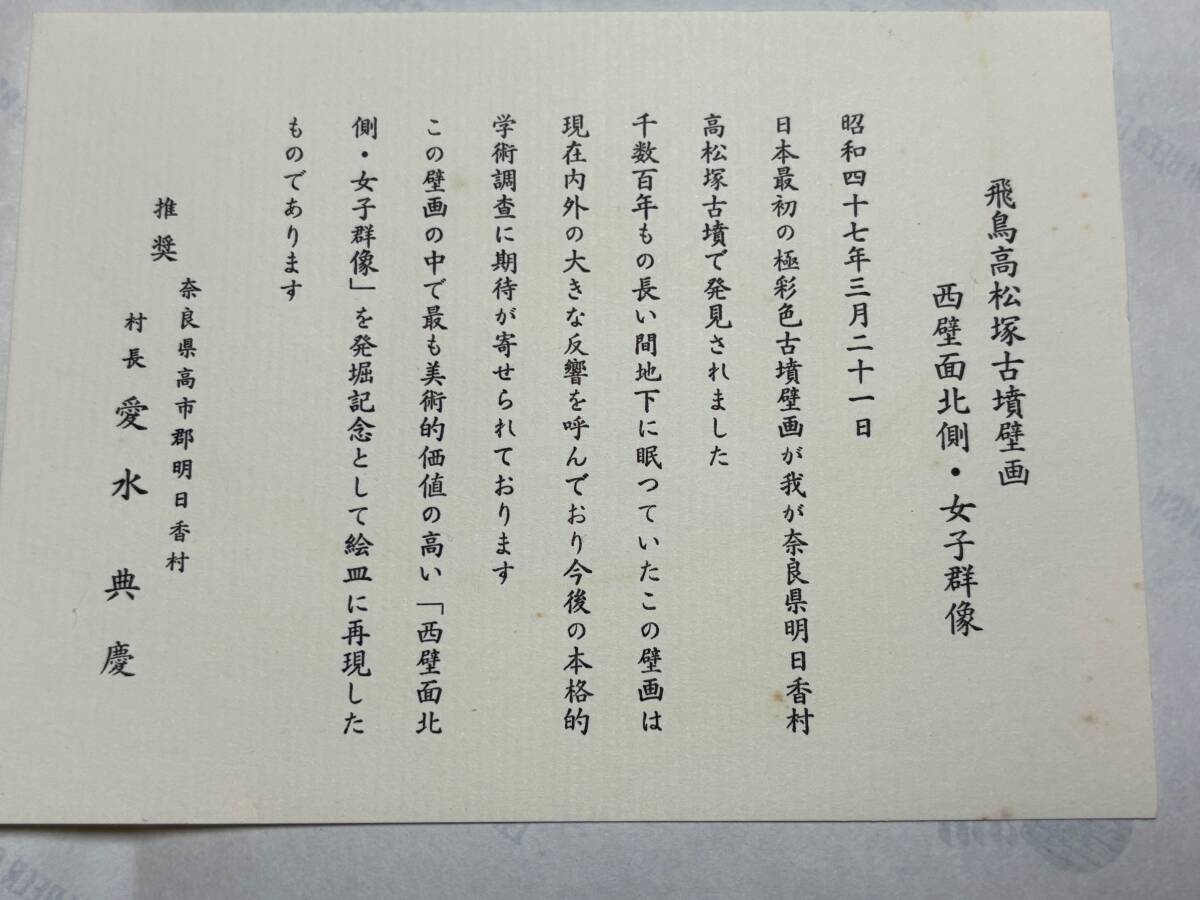 飛鳥高松塚古墳壁画
西壁面北側・女子群像
昭和四十七年三月二十一日
日本最初の極彩色古墳壁画が我が奈良県明日香村
高松塚古墳で発見されました
千数百年もの長い間地下に眠つていたこの壁画は
現在内外の大きな反響を呼んでおり今後の本格的
学術調査に期待が寄せられております
この壁画の中で最も美術的価値の高い「西壁面北
側・女子群像」を発堀記念として絵皿に再現した
ものであります
推奨
奈良県高市郡明日香村
村長 愛水典慶